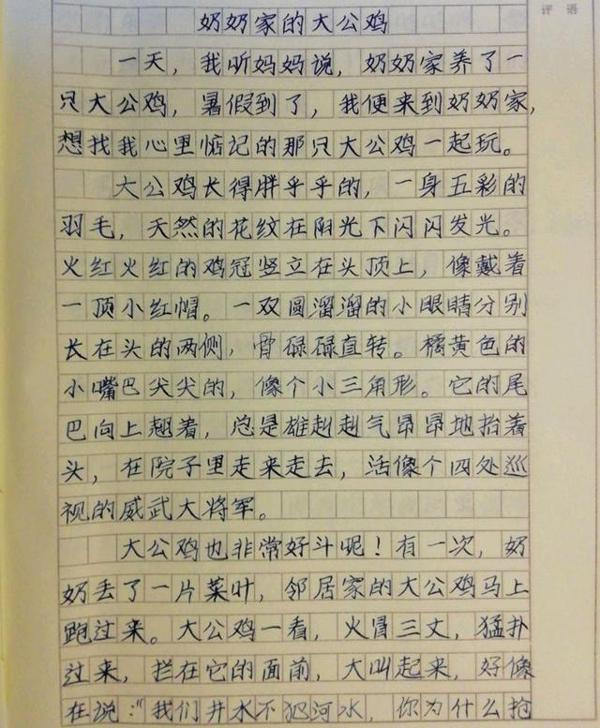 评 语
奶奶家的大公鸡
一天，我听妈妈说，奶奶家养了一
只大公鸡，暑假到了，我便来到奶奶家，
想找我心里惦记的那只大公鸡一起玩。
大公鸡长得胖乎乎的，一身五彩的
羽毛，天然的花纹在阳光下闪闪发光。
火红火红的鸡冠竖立在头顶上，像戴着
一顶小红帽。一双圆溜溜的小眼睛分别
长在头的两侧，骨碌碌直转。橘黄色的
小嘴巴尖尖的，像个小三角形。它的尾
巴向上翘着，总是雄赳赳气昂昂地抬着
头，在院子里走来走去，活像个四处巡
视的威武大将军。
大公鸡也非常好斗呢！有一次，奶
奶丢了一片菜叶，邻居家的大公鸡马上
跑过来。大公鸡一看，火冒三丈，猛扑
过来，拦在它的面前，大叫起来，好像
在说："我们井水不犯河水，你为什么抢